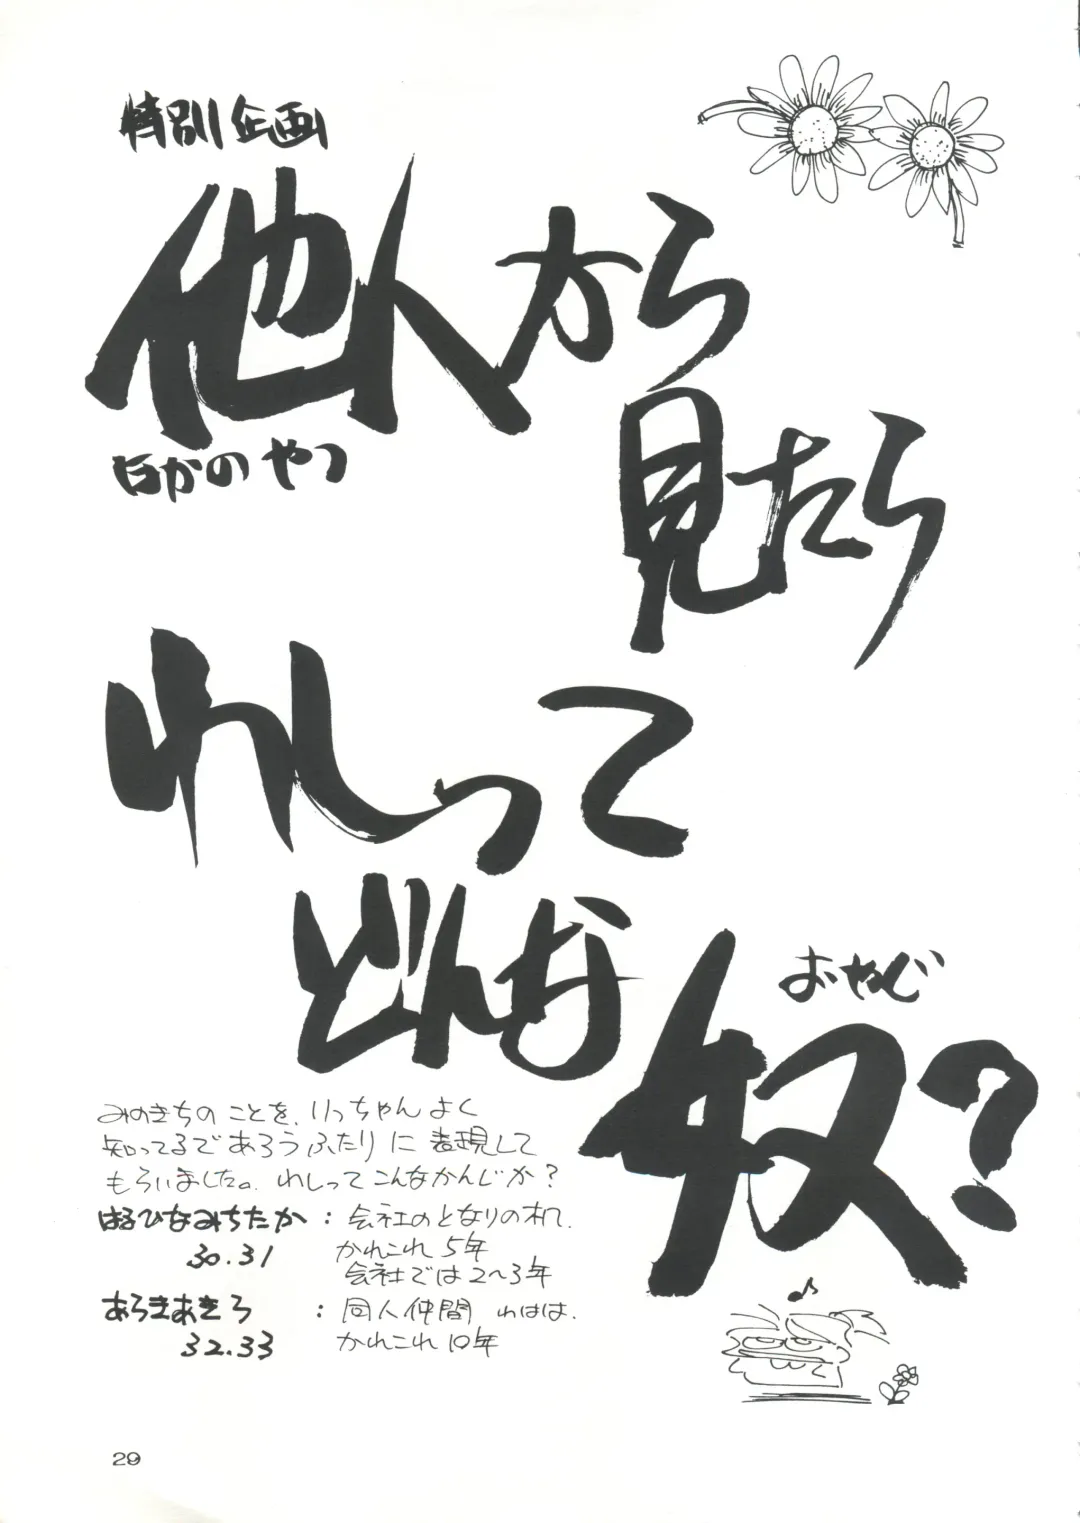 特別企画
他人から
ほかのやつ
見たら
わしって
どんな
おやじ
奴?
みのきちのことを、りっちゃんよく
知ってるであろうふたりに表現して
もらいました。わしってこんなかんじか?
はるひなみちたか : 会社のとなりの机.
30.31 かれこれ5年
会社では2〜3年
あらきあきら : 同人仲間 わはは.
32.33 かれこれ10年
♪
29